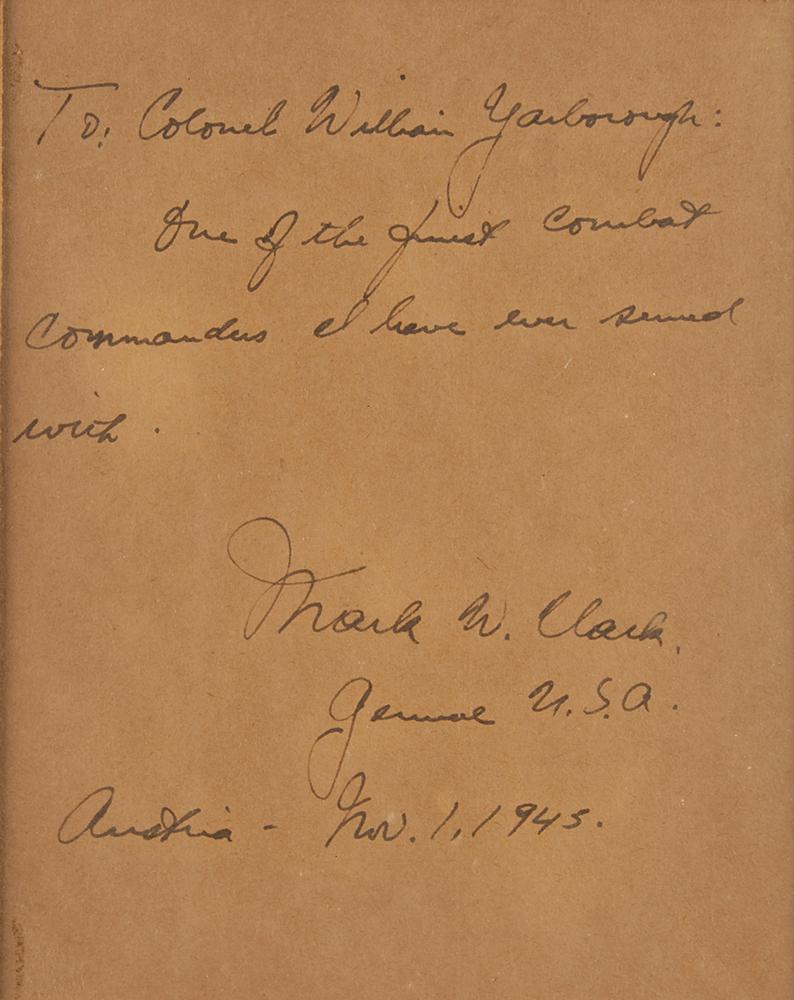 To: Colonel William Yarborough:
One of the finest combat
Commanders I have ever served
with.
Mark W. Clark.
General U.S.A.
Austria - Nov. 1, 1945.